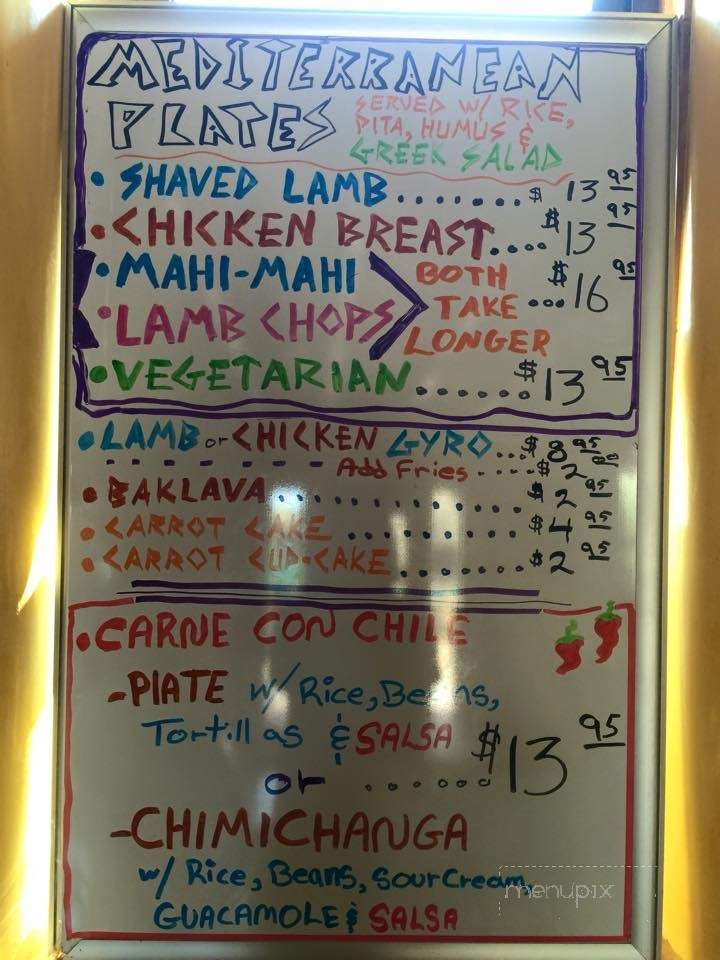 MEDITERRANEAN
PLATES SERVED W/ RICE,
PITA, HUMUS &
GREEK SALAD
• SHAVED LAMB....... $ 13 95
• CHICKEN BREAST.... $ 13 95
• MAHI-MAHI > BOTH TAKE LONGER ... $ 16 95
• LAMB CHOPS
• VEGETARIAN ...... $ 13 95
• LAMB or CHICKEN GYRO ... $ 8 95
- - - - - - Add Fries .... $ 2 00
• BAKLAVA............ $ 2 95
• CARROT CAKE ......... $ 4 95
• CARROT CUP-CAKE....... $ 2 95
• CARNE CON CHILE
-PLATE w/ Rice, Beans,
Tortillas & SALSA $13 95
or ......
-CHIMICHANGA
w/ Rice, Beans, sour Cream,
GUACAMOLE & SALSA
menupix